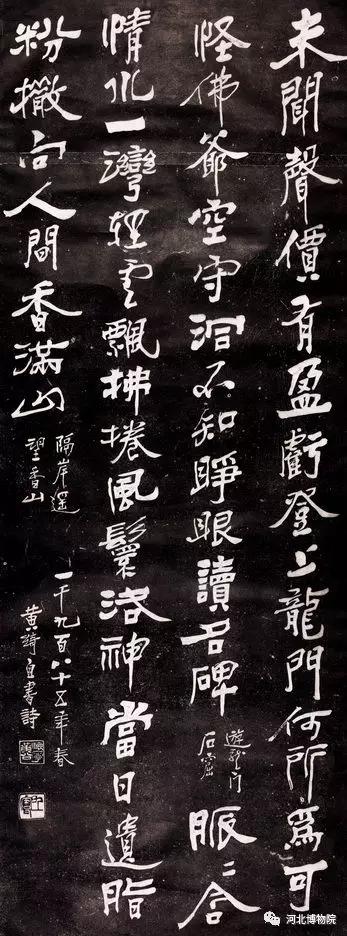 未聞聲價有盈虧登上龍門何所爲可
怪佛爺空守洞不知睜眼讀名碑
遊龍門
石窟
脈〻含
情水一灣輕雲飄拂捲風鬟洛神當日遺脂
粉撒向人間香滿山
隔岸遥
望香山
一千九百八十五年春
黃綺自書詩
河北博物院